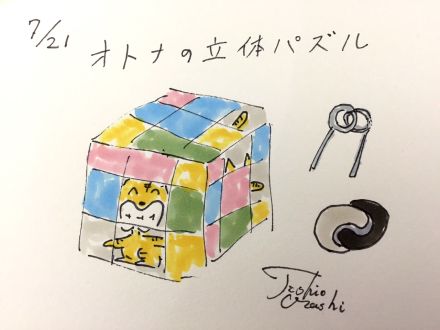 7/21
オトナの立体パズル